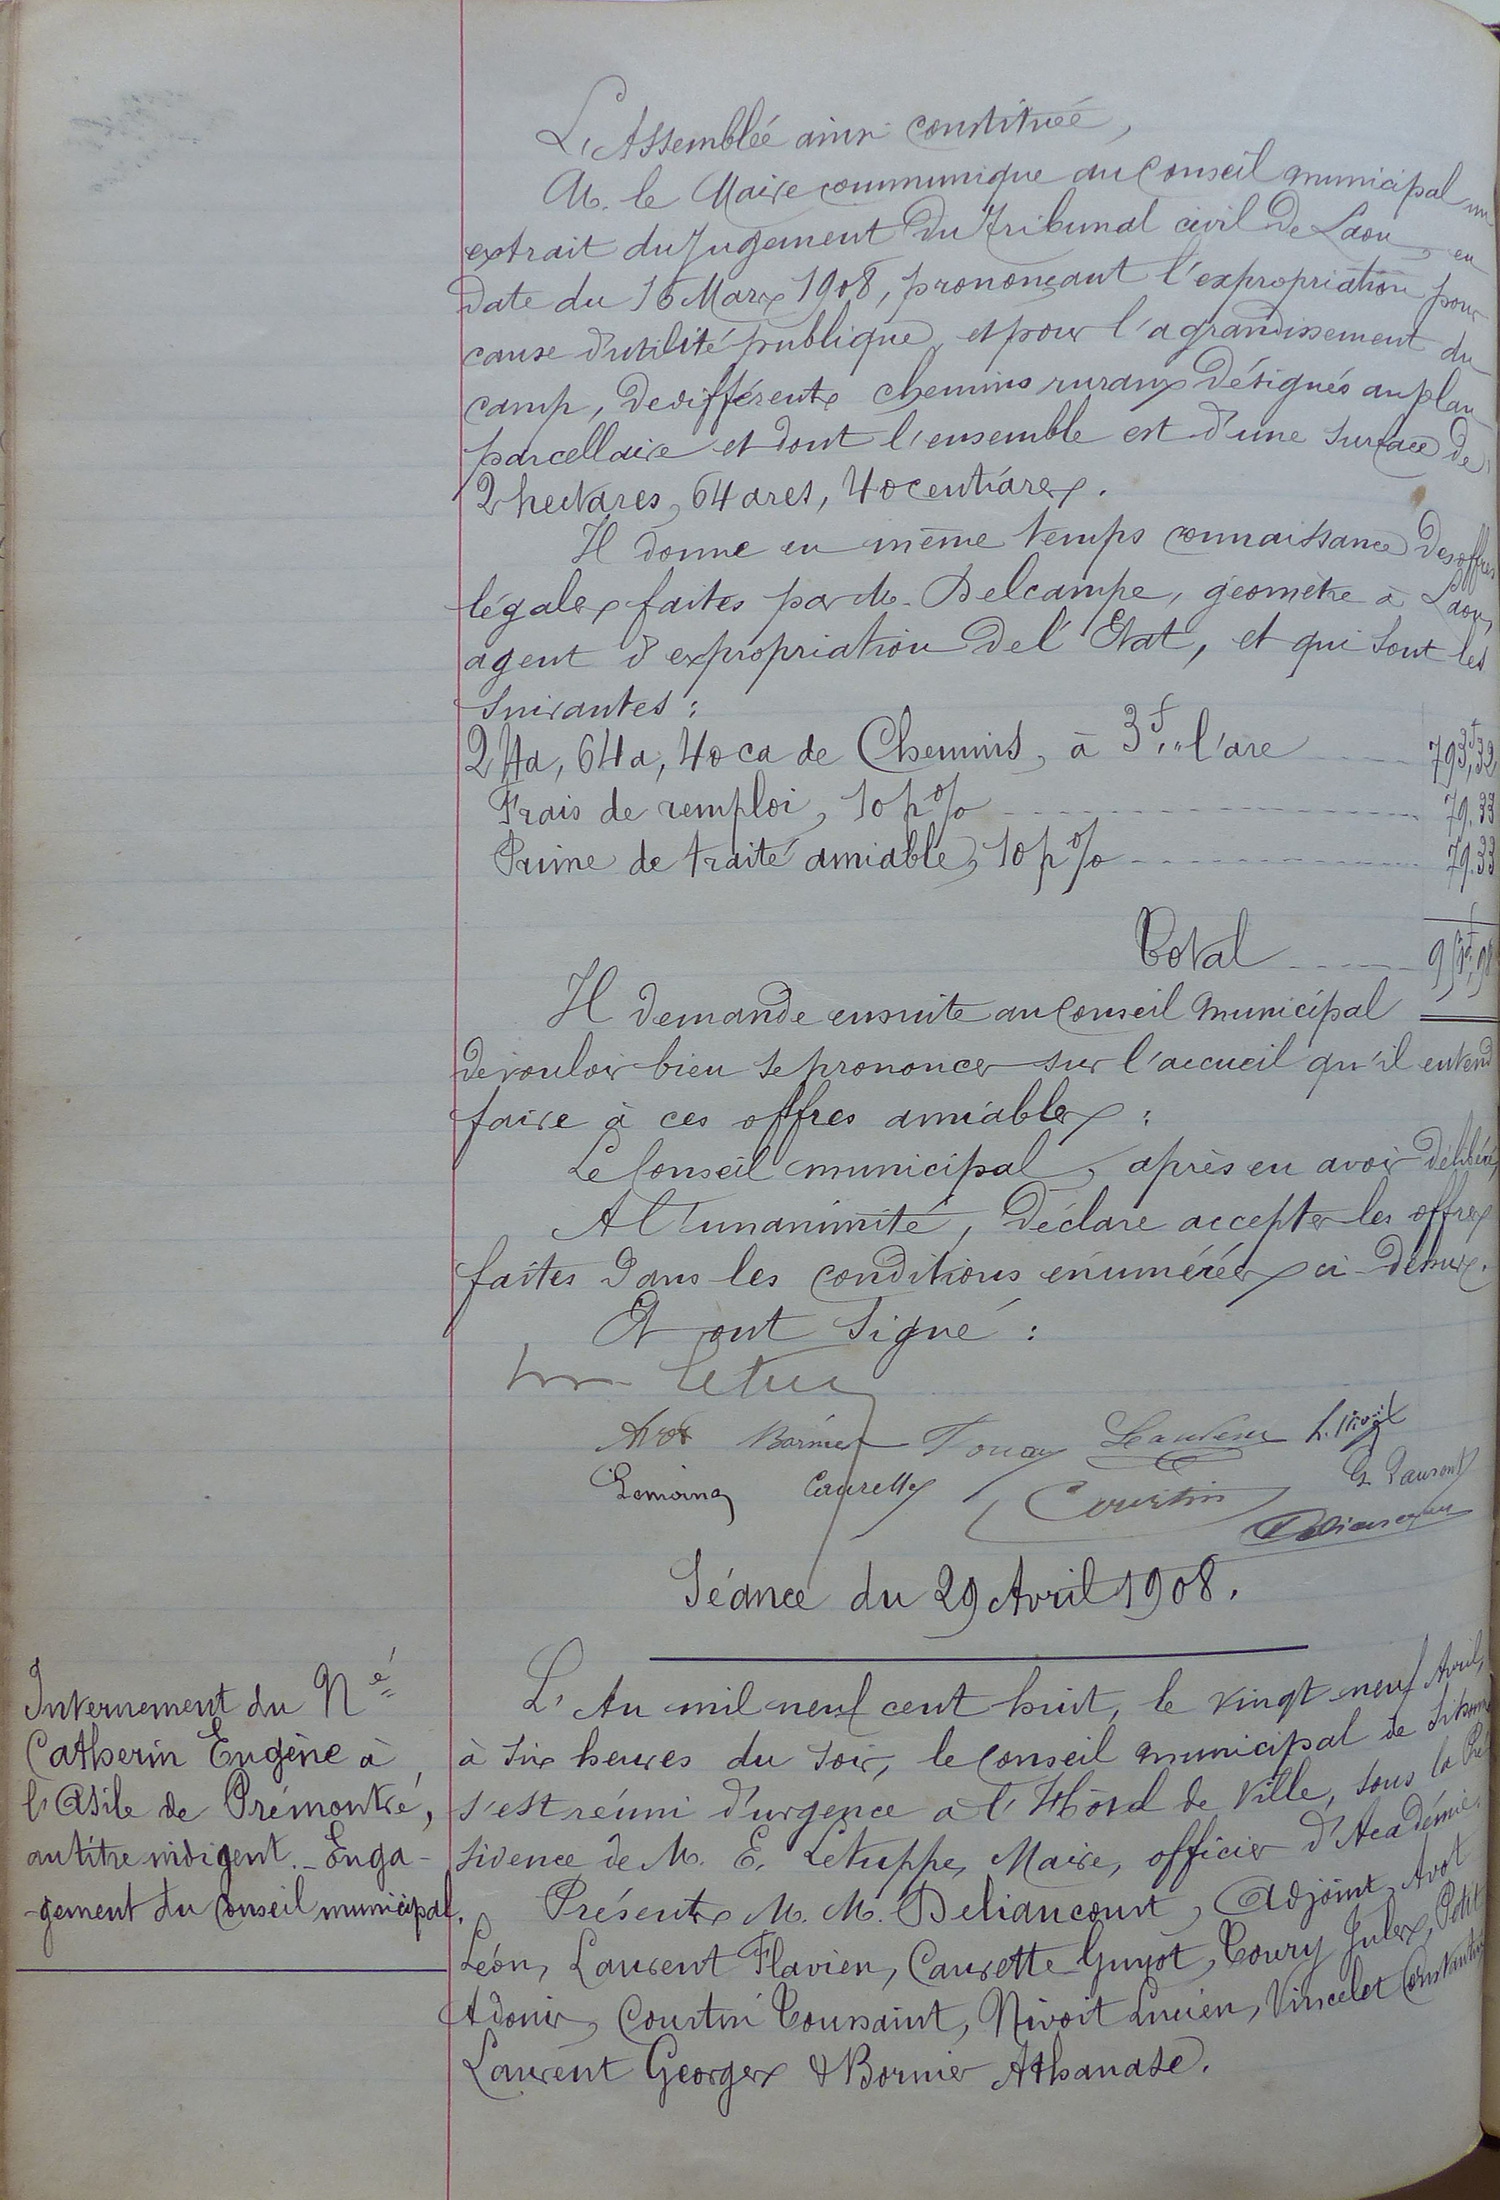 L'Assemblée ainsi constituée,
M. le Maire communique au Conseil municipal un
extrait du Jugement du Tribunal civil de Laon, en
date du 16 Mars 1908, prononçant l'expropriation pour
cause d'utilité publique, et pour l'agrandissement du
camp, de différents chemins ruraux désignés au plan
parcellaire et dont l'ensemble est d'une surface de
2 hectares, 64 ares, 40 centiares.
Il donne en même temps connaissance des offres
légales faites par M. Delcampe, géomètre à Laon,
agent d'expropriation de l'Etat, et qui sont les
suivantes :
2 Ha, 64 a, 40 ca de Chemins, à 3f,,, l'are 793f,32
Frais de remploi, 10 p % 79.33
Prime de traité amiable, 10 p % 79.33
Total 951f,98
Il demande ensuite au Conseil municipal
de vouloir bien se prononcer sur l'accueil qu'il entend
faire à ces offres amiables :
Le Conseil municipal, après en avoir délibéré,
A l'unanimité, déclare accepter les offres
faites dans les conditions énumérées ci-dessus.
Et ont signé :
Avot Bornier Toury L. Nivoit
Lemoine Caurette Courtin G. Laurent
Deliancourt
Séance du 29 Avril 1908.
Internement du Né
Catherin Eugène à
l'Asile de Prémontré,
au titre indigent. - Enga-
-gement du Conseil municipal.
L'An mil neuf cent huit, le vingt-neuf Avril,
à six heures du soir, le Conseil municipal de Sissonne
s'est réuni d'urgence à l'Hôtel de Ville, sous la Pré
sidence de M. E. Letuppe, Maire, officier d'Académie.
Présents M. M. Deliancourt, Adjoint, Avot
Léon, Laurent Flavien, Caurette Guyot, Toury Jules, Petit
Adonis, Courtin Toussaint, Nivoit Lucien, Vincelet Constantin
Laurent Georges & Bornier Athanase.